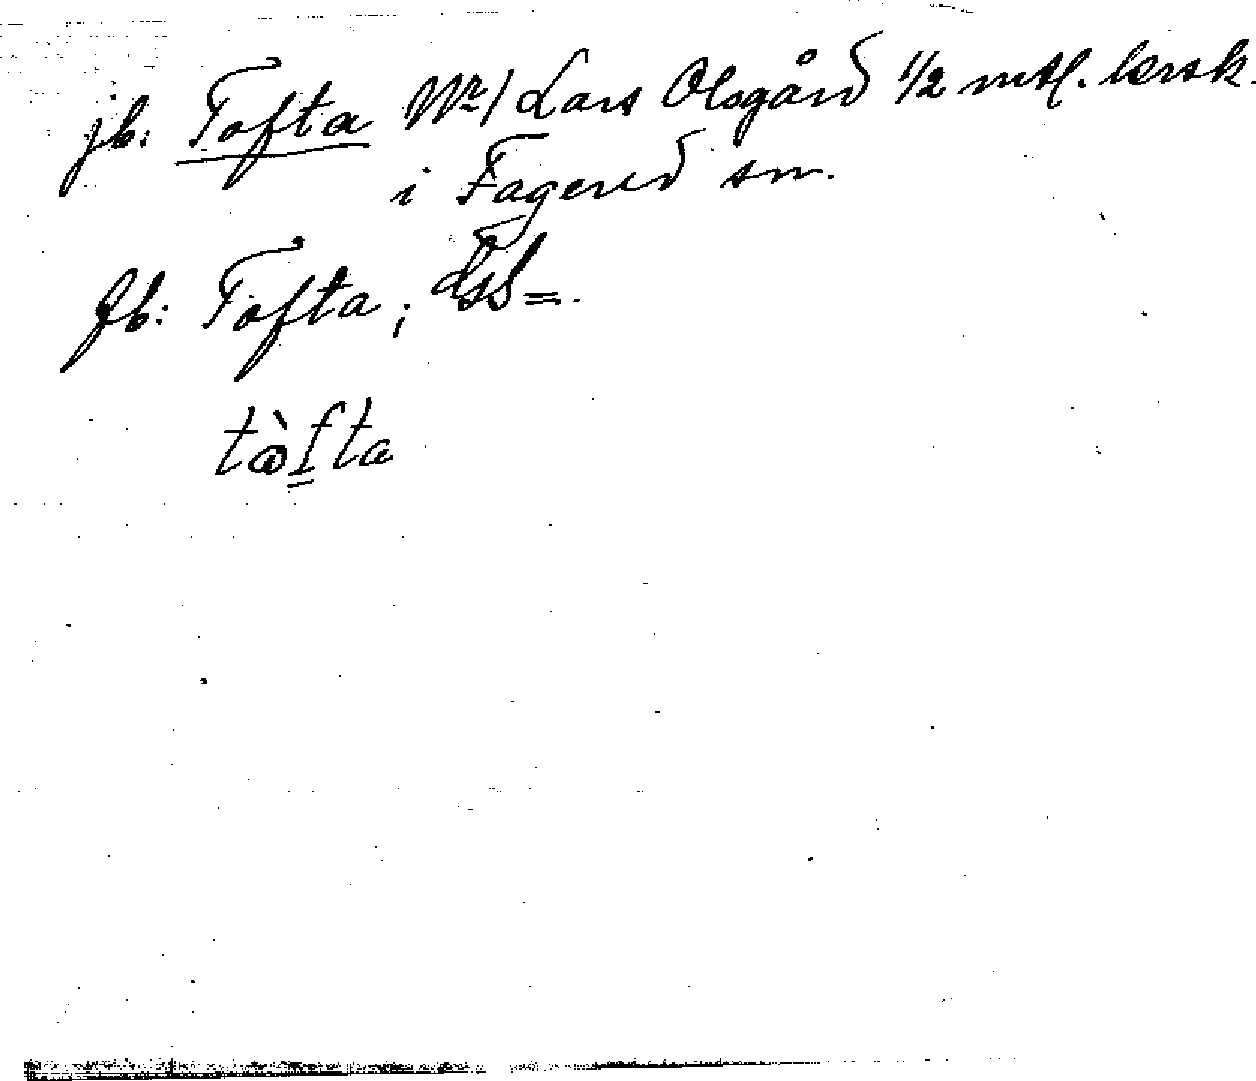 jb: Tofta Nr 1 Lars Olsgård 1/2 mtl. krsk.
i Fagered sn.
fb: Tofta; dss=.
tàfta